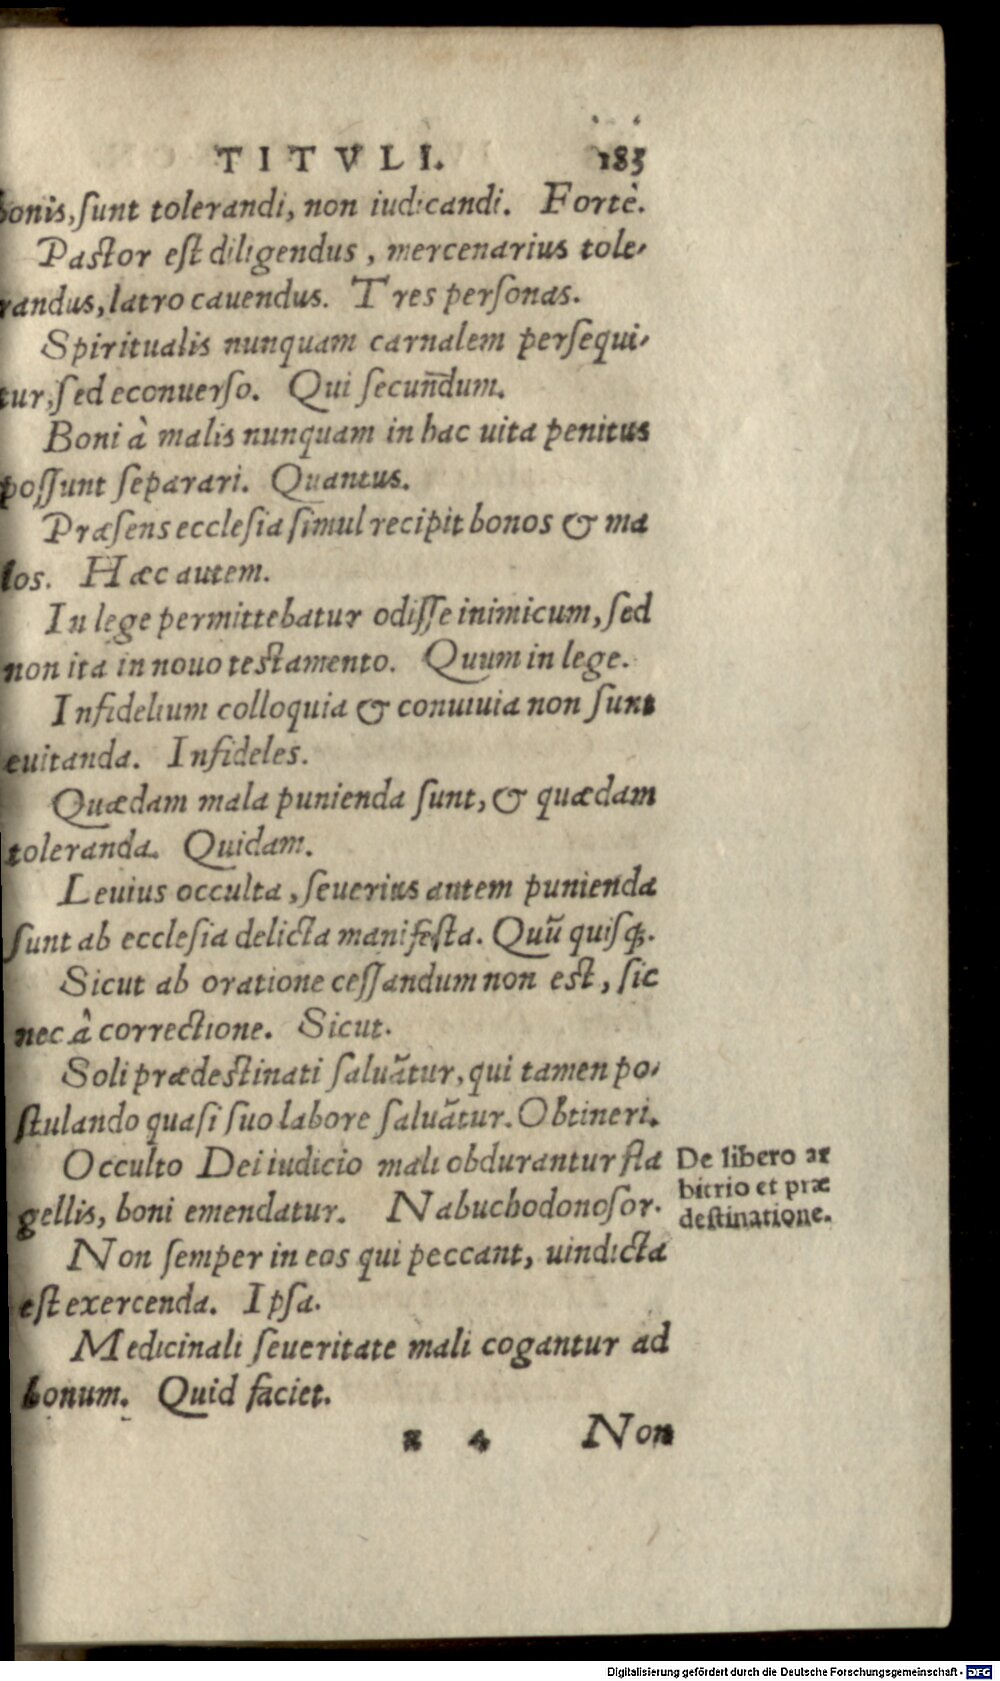 TITVLI. 183
bonis, sunt tolerandi, non iudicandi. Fortè.
Pastor est diligendus, mercenarius tole-
randus, latro cauendus. Tres personas.
Spiritualis nunquam carnalem persequi-
tur, sed econuerso. Qui secundum.
Boni à malis nunquam in hac uita penitus
possunt separari. Quantus.
Præsens ecclesia simul recipit bonos & ma
los. Hæc autem.
In lege permittebatur odisse inimicum, sed
non ita in nouo testamento. Quum in lege.
Infidelium colloquia & conuiuia non sunt
euitanda. Infideles.
Quædam mala punienda sunt, & quædam
toleranda. Quidam.
Leuius occulta, seuerius autem punienda
sunt ab ecclesia delicta manifesta. Quũ quisq;.
Sicut ab oratione cessandum non est, sic
nec à correctione. Sicut.
Soli prædestinati saluãtur, qui tamen po-
stulando quasi suo labore saluãtur. Obtineri.
Occulto Dei iudicio mali obdurantur fla
gellis, boni emendatur. Nabuchodonosor.
De libero ar
bitrio et præ
destinatione.
Non semper in eos qui peccant, uindicta
est exercenda. Ipsa.
Medicinali seueritate mali cogantur ad
bonum. Quid faciet.
z 4 Non
Digitalisierung gefördert durch die Deutsche Forschungsgemeinschaft - DFG